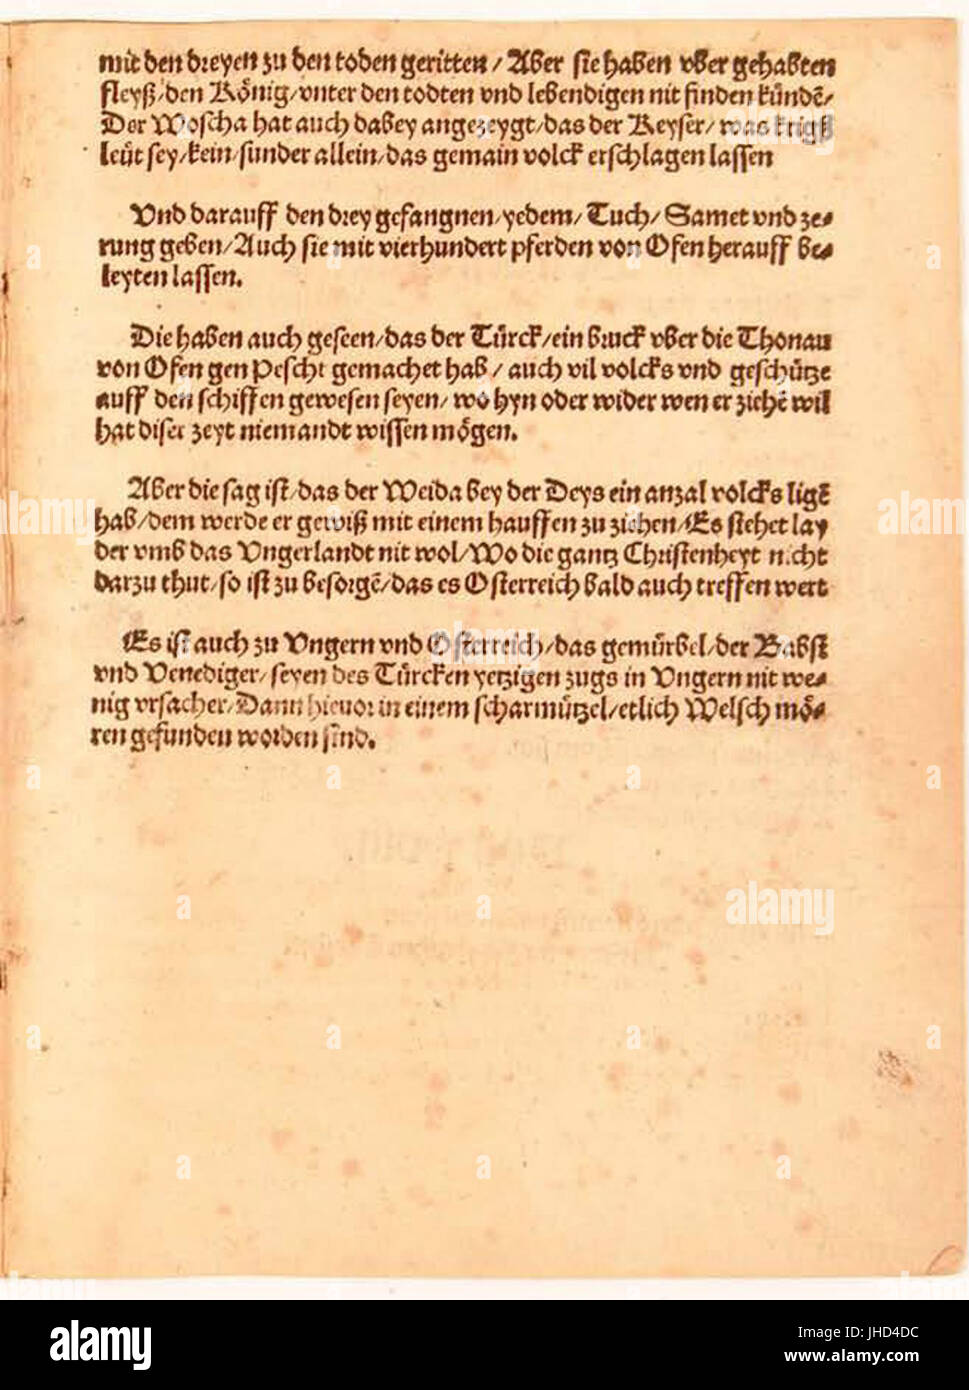 mit den dreyen zu den toden geritten / Aber sie haben vber gehabten
fleyß/den König/vnter den todten vnd lebendigen nit finden kündē/
Der Woscha hat auch dabey angezeygt/das der Keyser/was krigß
leüt sey/kein/sunder allein/das gemain volck erschlagen lassen
Vnd darauff den drey gefangnen/yedem/Tuch/Samet vnd ze-
rung geben/Auch sie mit vierhundert pferden von Ofen herauff be-
leyten lassen.
Die haben auch geseen/das der Türck/ein bruck vber die Thonau
von Ofen gen Pescht gemachet hab/auch vil volcks vnd geschütze
auff den schiffen gewesen seyen/wo hyn oder wider wen er ziehē wil
hat diser zeyt niemandt wissen mögen.
Aber die sag ist/das der Weida bey der Deys ein anzal volcks ligē
hab/dem werde er gewiß mit einem hauffen zu ziehen/Es stehet lay
der vmb das Vngerlandt nit wol/Wo die gantz Christenheyt nicht
darzu thut/so ist zu besorgē/das es Osterreich bald auch treffen wert
Es ist auch zu Vngern vnd Osterreich/das gemürbel/der Babst
vnd Venediger/seyen des Türcken yetzigen zugs in Vngern nit we-
nig vrsacher/Dann hieuor in einem scharmützel/etlich Welsch mö-
ren gefunden worden sind.
alamy
Image ID: JHD4DC
www.alamy.com